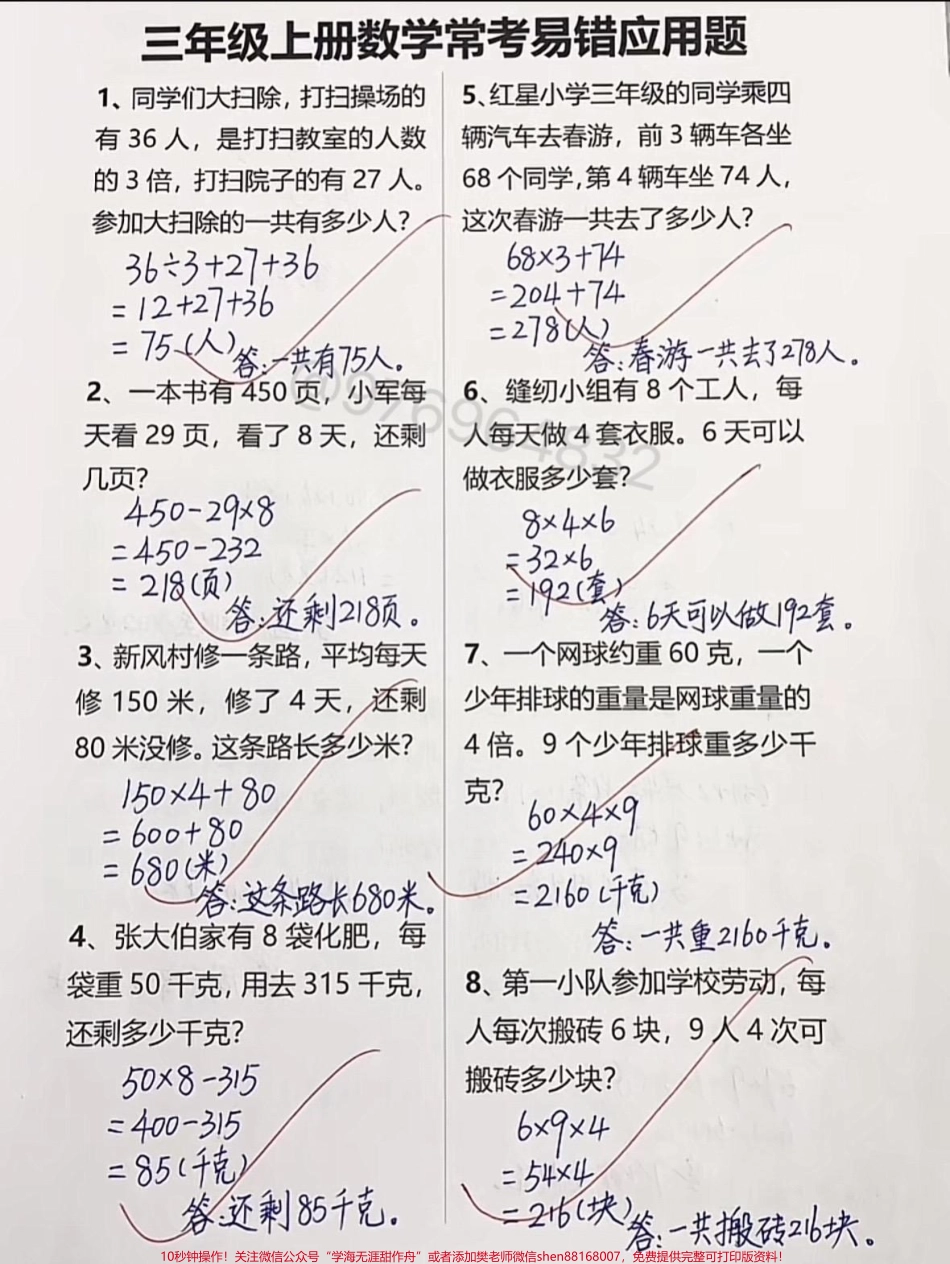 三年级上册数学常考易错应用题
1、同学们大扫除，打扫操场的
有 36 人，是打扫教室的人数
的 3 倍，打扫院子的有 27 人。
参加大扫除的一共有多少人？
36÷3+27+36
=12+27+36
=75(人)
答:一共有75人。
2、一本书有 450 页，小军每
天看 29 页，看了 8 天，还剩
几页？
450-29×8
=450-232
=218(页)
答:还剩218页。
3、新风村修一条路，平均每天
修 150 米，修了 4 天，还剩
80 米没修。这条路长多少米？
150×4+80
=600+80
=680(米)
答:这条路长680米。
4、张大伯家有 8 袋化肥，每
袋重 50 千克，用去 315 千克，
还剩多少千克？
50×8-315
=400-315
=85(千克)
答:还剩85千克。
5、红星小学三年级的同学乘四
辆汽车去春游，前 3 辆车各坐
68 个同学，第 4 辆车坐 74 人，
这次春游一共去了多少人？
68×3+74
=204+74
=278(人)
答:春游一共去了278人。
6、缝纫小组有 8 个工人，每
人每天做 4 套衣服。6 天可以
做衣服多少套？
8×4×6
=32×6
=192(套)
答:6天可以做192套。
7、一个网球约重 60 克，一个
少年排球的重量是网球重量的
4 倍。9 个少年排球重多少千
克？
60×4×9
=240×9
=2160(千克)
答:一共重2160千克。
8、第一小队参加学校劳动，每
人每次搬砖 6 块，9 人 4 次可
搬砖多少块？
6×9×4
=54×4
=216(块)
答:一共搬砖216块。
@976964832
10秒钟操作！关注微信公众号“学海无涯甜作舟”或者添加樊老师微信shen88168007，免费提供完整可打印版资料！